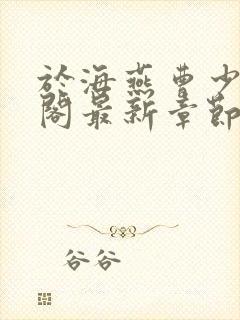 於海燕曹少
閣最新章節
谷谷